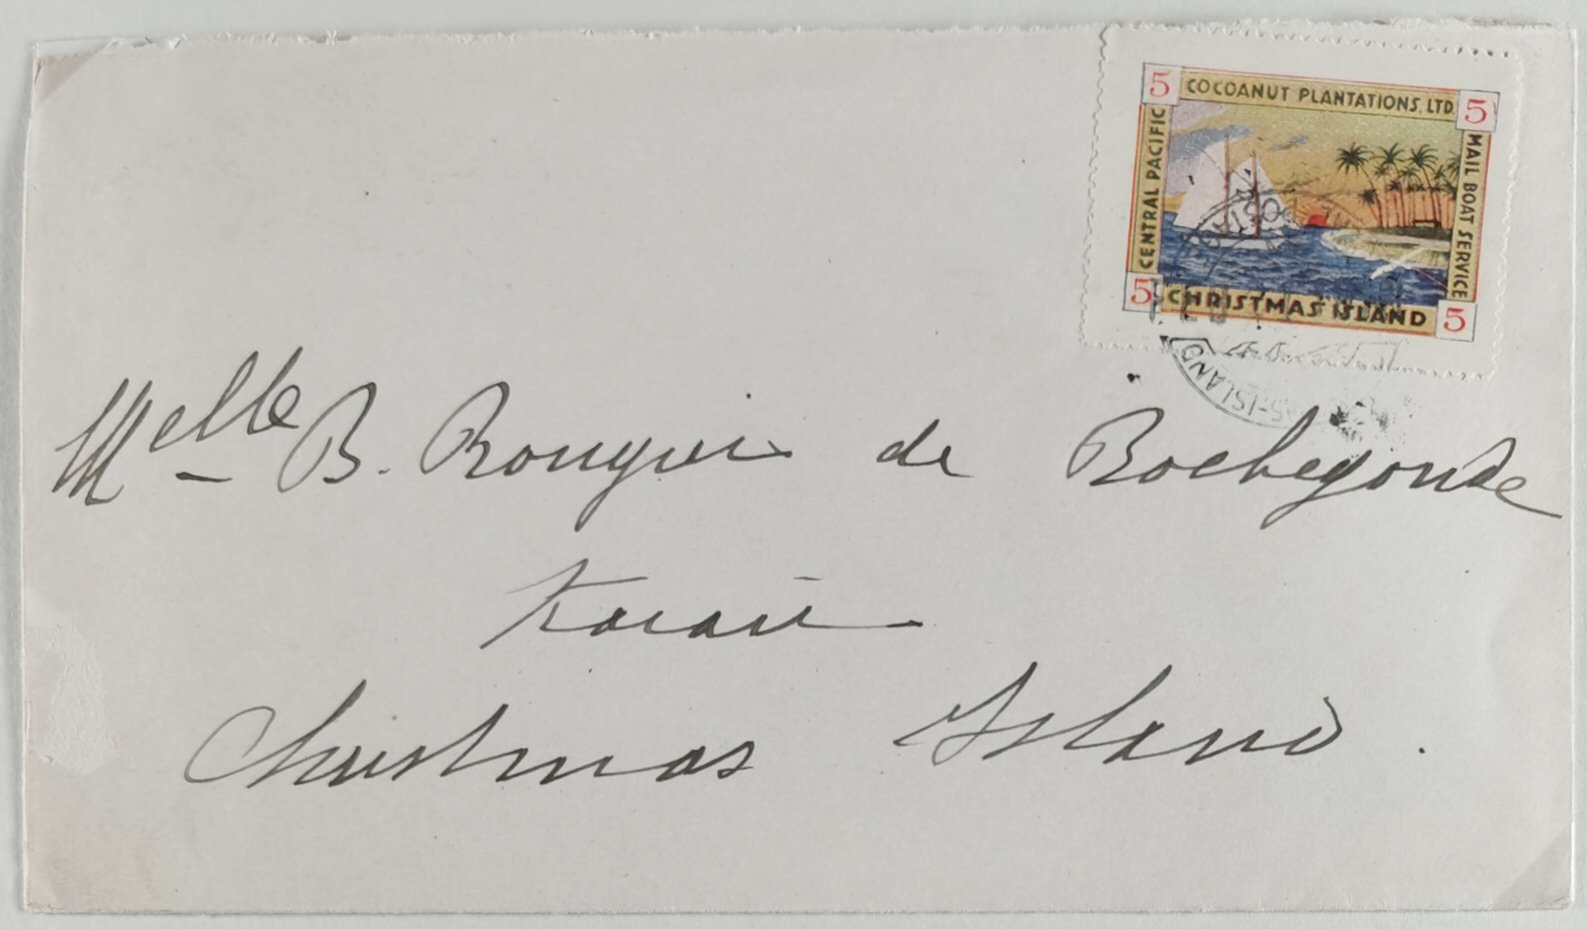 5 COCOANUT PLANTATIONS, LTD. 5
CENTRAL PACIFIC
MAIL BOAT SERVICE
5 CHRISTMAS ISLAND 5
S-ISLAND
Melle B. Rougier de Rochegonde
Christmas Island.